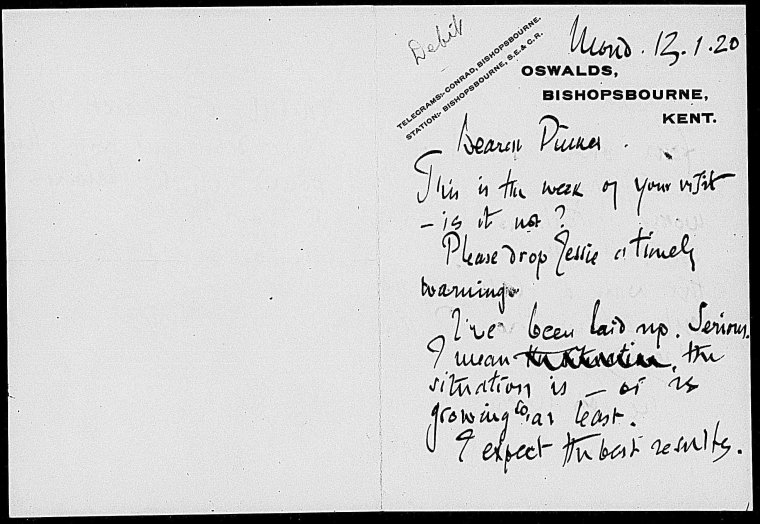 Debit
TELEGRAMS:- CONRAD, BISHOPSBOURNE.
STATION:- BISHOPSBOURNE, S.E. & C.R.
Mond. 12.1.20
OSWALDS,
BISHOPSBOURNE,
KENT.
Dearest Pinker.
This is the week of your visit
– is it not?
Please drop Jessie a timely
warning.
I've been laid up. Serious.
I mean the
situation is – or is
growing so, at least.
I expect the best results.